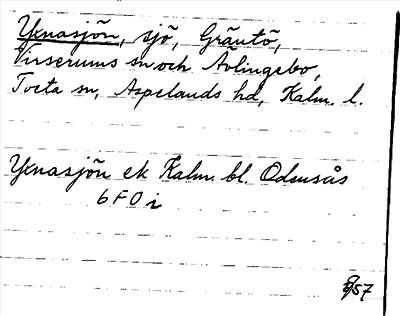 Yxnasjön, sjö, Gräntö,
Virserums sn och Älingebo,
Tveta sn, Aspelands hd, Kalm. l.
Yxnasjön ek Kalm. bl. Odensås
6 F 0 i
8/57